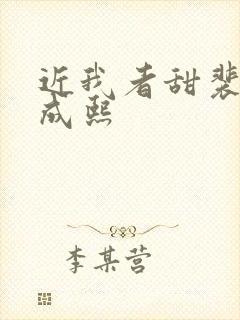 近我者甜裴
成熙
李某营